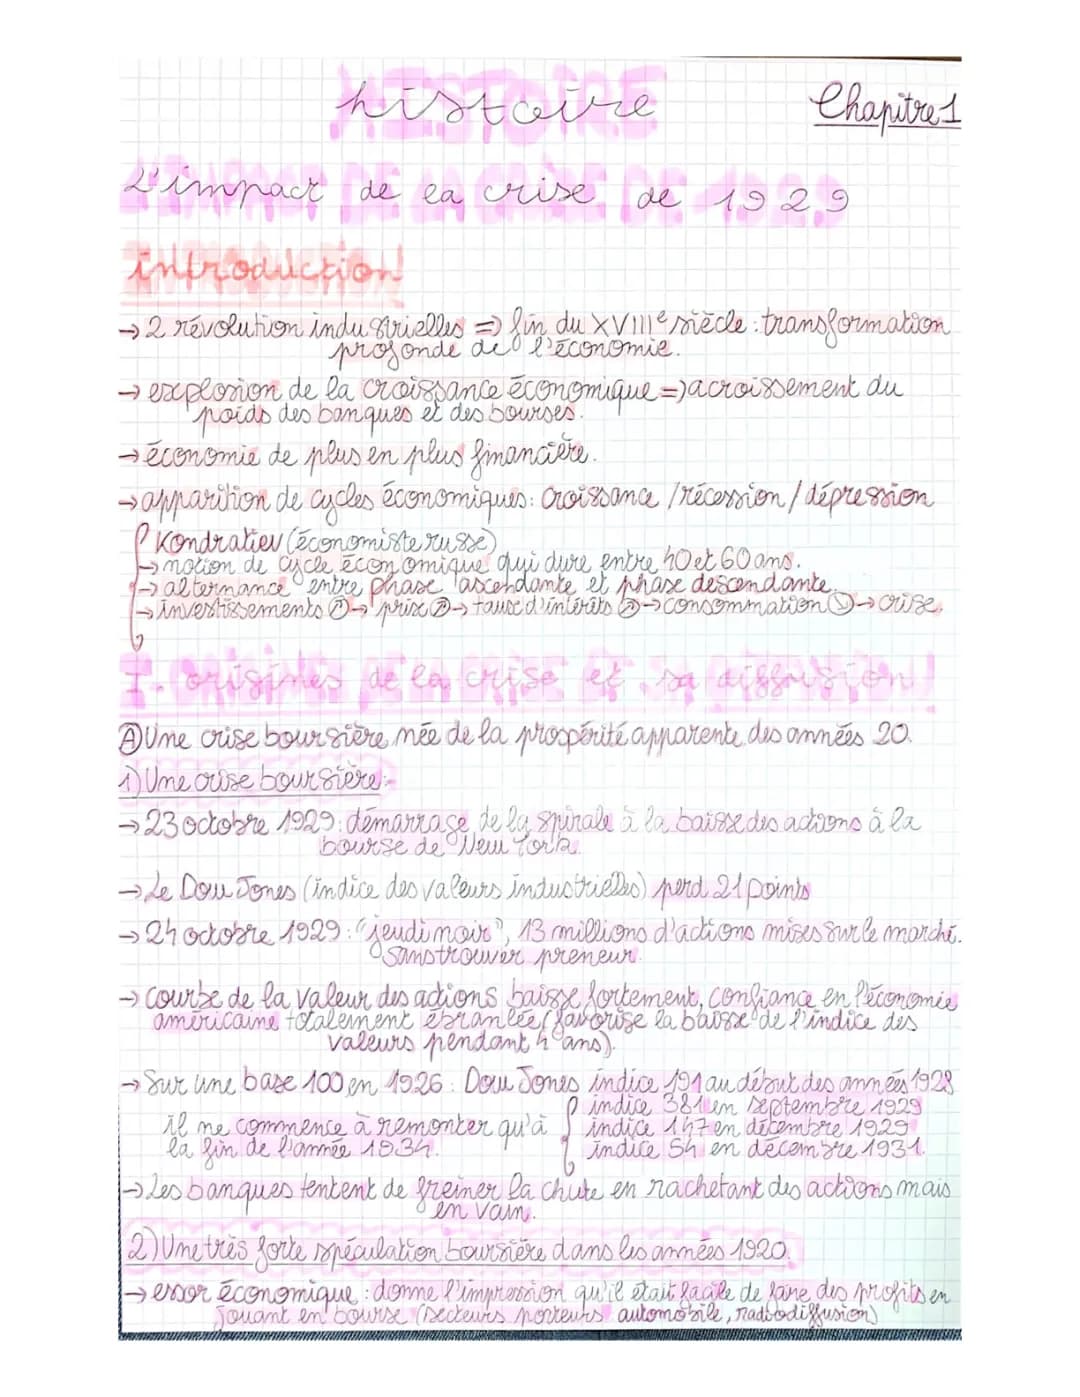 histoire
Chapitre 1
L'impact de la crise de 1929
introduction
→ 2 révolution industrielles => fin du XVIIIe siècle : transformation
profonde de l'économie.
→ explosion de la croissance économique => acroissement du
poids des banques et des bourses.
→ économie de plus en plus financière.
→ apparition de cycles économiques : croissance / récession / dépression
Kondratiev (économiste russe)
→ notion de cycle économique qui dure entre 40 et 60 ans.
→ alternance entre phase ascendante et phase descendante.
→ investissements ↗ → prix ↗ → taux d'intérêts ↗ → consommation ↘ → crise.
I. origines de la crise et sa diffusion !
A Une crise boursière née de la prospérité apparente des années 20.
1) Une crise boursière :
→ 23 octobre 1929 : démarrage de la spirale à la baisse des actions à la
bourse de New York.
→ Le Dow Jones (indice des valeurs industrielles) perd 21 points
→ 24 octobre 1929 : "jeudi noir", 13 millions d'actions mises sur le marché.
sans trouver preneur.
→ courbe de la valeur des actions baisse fortement, confiance en l'économie
américaine totalement ébranlée (favorise la baisse de l'indice des
valeurs pendant 4 ans).
→ Sur une base 100 en 1926 : Dow Jones indice 191 au début des années 1928
indice 381 en septembre 1929
il ne commence à remonter qu'à indice 147 en décembre 1929
la fin de l'année 1934. indice 54 en décembre 1931.
→ Les banques tentent de freiner la chute en rachetant des actions mais
en vain.
2) Une très forte spéculation boursière dans les années 1920.
→ essor économique : donne l'impression qu'il était facile de faire des profits en
jouant en bourse (secteurs porteurs automobile, radiodiffusion)